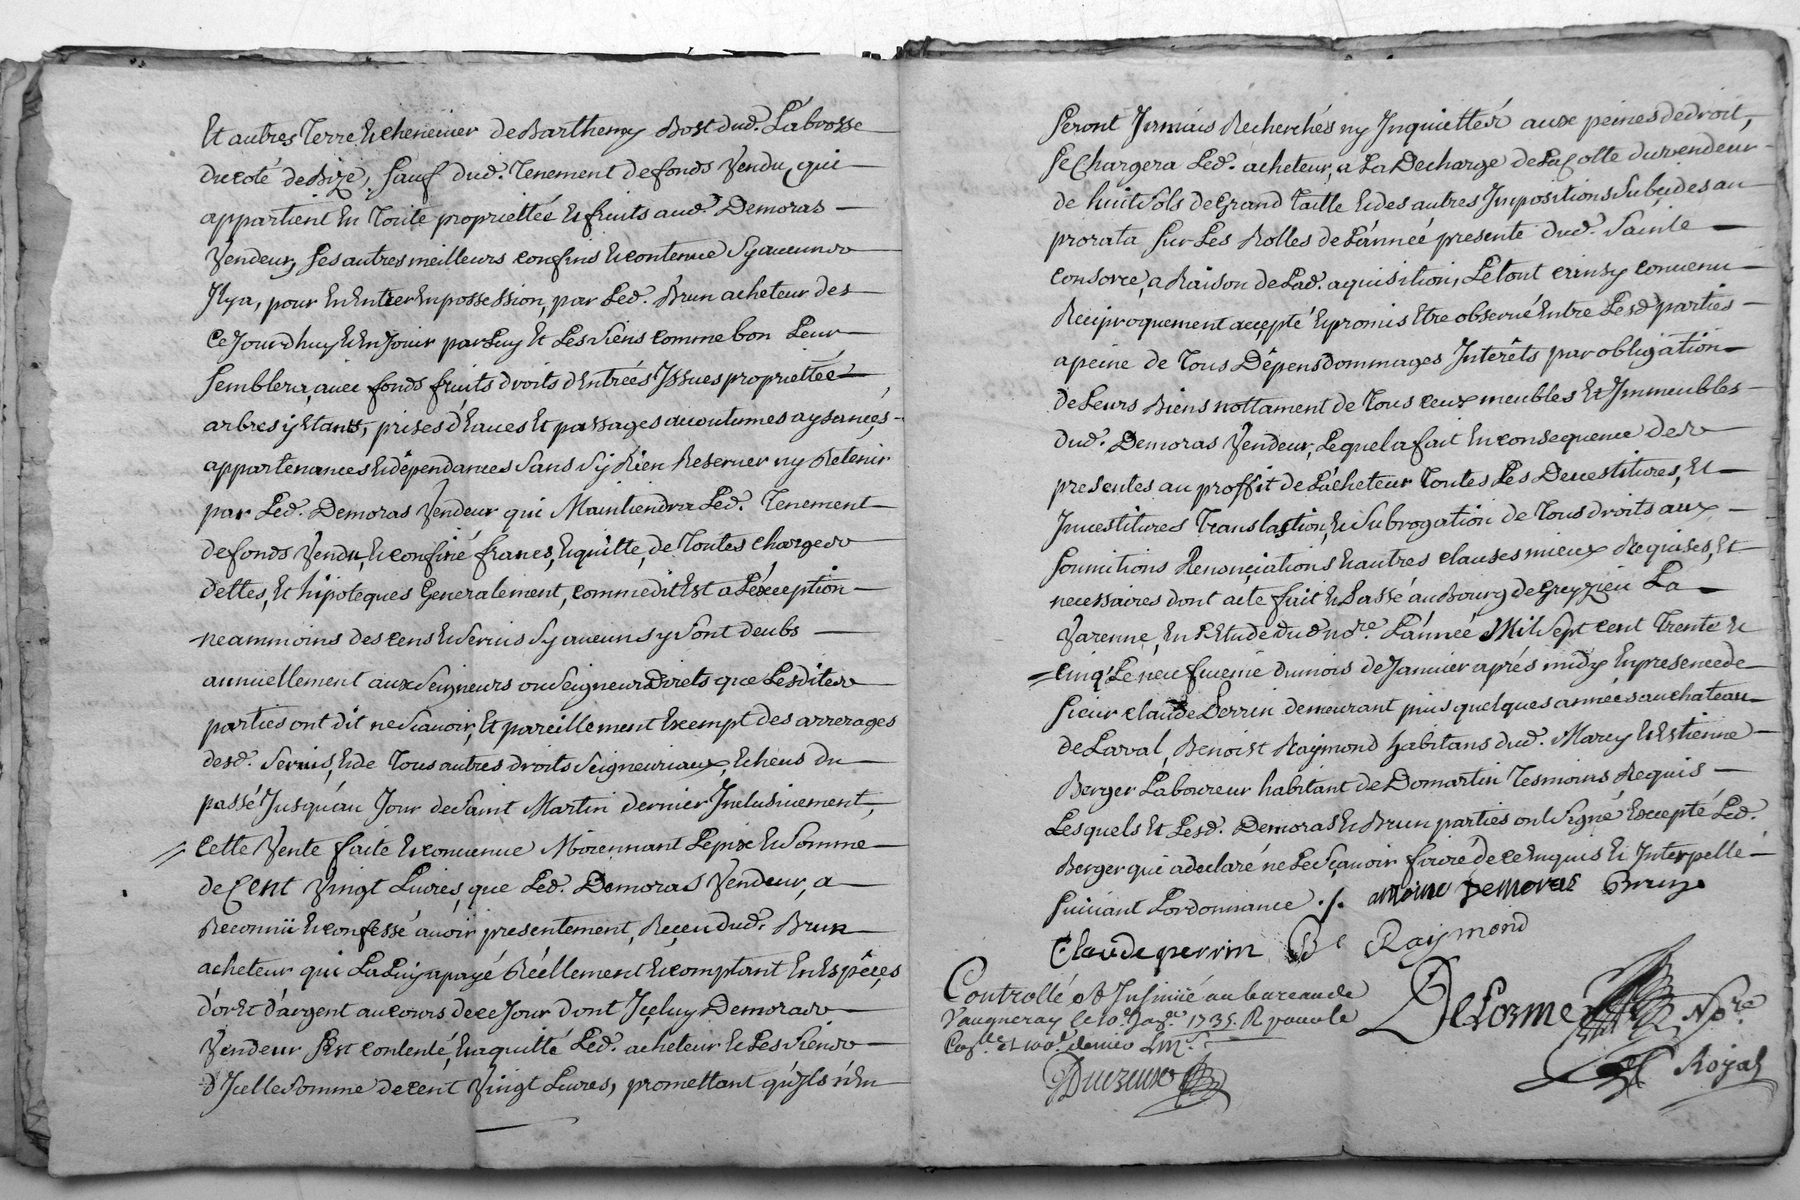 Et autres Terre Et cheneuier de Barthemy Bost dud. Labrosse
Du coté de Bize, Sauf dud. Tenement de fonds Vendu qui
appartient En Toute propriettée Et fruits aud. Demoras
Vendeur, Ses autres meilleurs confins Et contenue Sy aucuns
Il y a, pour En Entrer En possession, par Led. Brun acheteur des
Ce Jourdhuy Et En Jouir par Luy Et Les Siens comme bon Leur
Semblera, auec fonds fruits droits d'Entrées Issues propriettée
arbres y Etants, prises d'Eaues Et passages accoutumes aysances,
appartenances Et dépendances Sans Sy Rien Reseruer ny Retenir
par Led. Demoras Vendeur qui Maintiendra Led. Tenement
de fonds Vendu, Et confiné francs, Et quitte, de Toutes charges
dettes, Et hipoteques Generalement, comme dit Est a L'éxception
neammoins des cens Et Seruis Sy aucuns y Sont deubs
annuellement aux Seigneurs ou Seigneur Dirèts que Lesdites
parties ont dit ne Scauoir, Et pareillement Exempt des arrerages
desd. Seruis, Et de Tous autres droits Seigneuriaux, Echeus du
passé Jusqu'au Jour de Saint Martin dernier Inclusiuement,
Cette Vente faite Et conuenue Moiennant Le prix Et Somme
de Cent Vingt Liures, que Led. Demoras Vendeur, a
Reconnü Et confessé auoir presentement, Reçeu dud. Brun
acheteur qui La Luy a payé Réellement Et comptant En Espêces,
d'or Et d'argent au cours de ce Jour dont Içeluy Demoras
Vendeur S'Est contenté, Et a quitté Led. acheteur Et Les Siens
d'Icelle Somme de cent Vingt Liures, promettant qu'Ils n'En
Seront Jamais Recherchés ny Inquiettés aux peines de droit,
Se Chargera Led. acheteur, a La Decharge de La Cotte du vendeur
de huit Sols de Grand Taille Et des autres Impositions Subcides au
prorata Sur Les Rolles de L'année presente dud. Sainte
Consorce, a Raison de Lad. aquisition, Le tout Et insy conuenu
Reciproquement accepté Et promis Etre obserué Entre Lesd. parties
a peine de Tous Dépens dommages Interêts par obligation
de Leurs Biens nottament de Tous ceux meubles Et Immeubles
dud. Demoras Vendeur, Lequel a fait En consequence des
presentes au proffit de L'acheteur Toutes Les Deuestitures, Et
Inuestitures Translastion, Et Subrogation de Tous droits aux
Soumitions Renonciations Et autres clauses mieux Requises, Et
necessaires dont acte fait Et Passé au Bourg de Greyzieu La
Varenne, En L'Etude dud. nore. L'année Mil Sept cent Trente Et
Cinq Le neufuieme du mois de Januier aprés midy En presence de
Sieur Claude Perrin demeurant puis quelques années au chateau
de Laval, Benoist Raymond habitans dud. Marcy Et Estienne
Berger Laboureur habitant de Domartin Tesmoins Requis
Lesquels Et Lesd. Demoras Et Brun parties ont Signé Excepté Led.
Berger qui a declaré ne Le Scauoir faire de ce Enquis Et Interpellé
Suiuant L'ordonnance ./. antoine Demoras Brun
Claude perrin Be Raymond
Controllé et Insinüé au bureau de
Vaugneray le 10e Janr. 1735. R
Delorme Nore
Royal